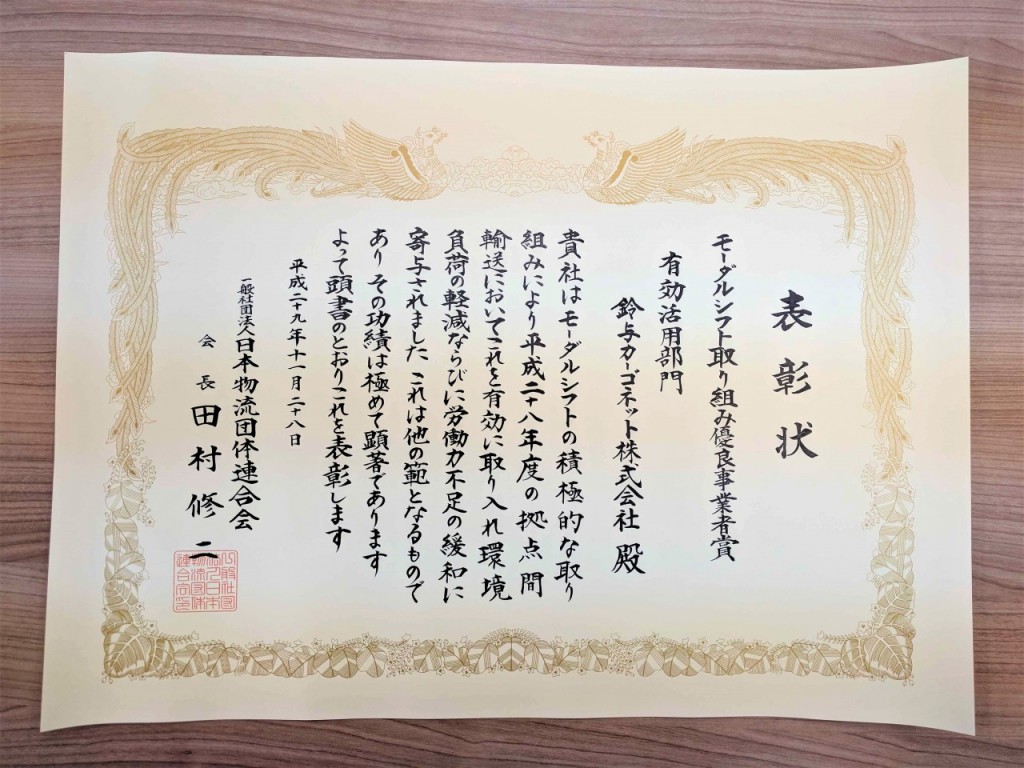 表彰状
モーダルシフト取り組み優良事業者賞
有効活用部門
鈴与カーゴネット株式会社 殿
貴社はモーダルシフトの積極的な取り
組みにより平成二十八年度の拠点間
輸送においてこれを有効に取り入れ環境
負荷の軽減ならびに労働力不足の緩和に
寄与されました これは他の範となるもので
あり その功績は極めて顕著であります
よって頭書のとおりこれを表彰します
平成二十九年十一月二十八日
一般社団法人日本物流団体連合会
会長 田村修二